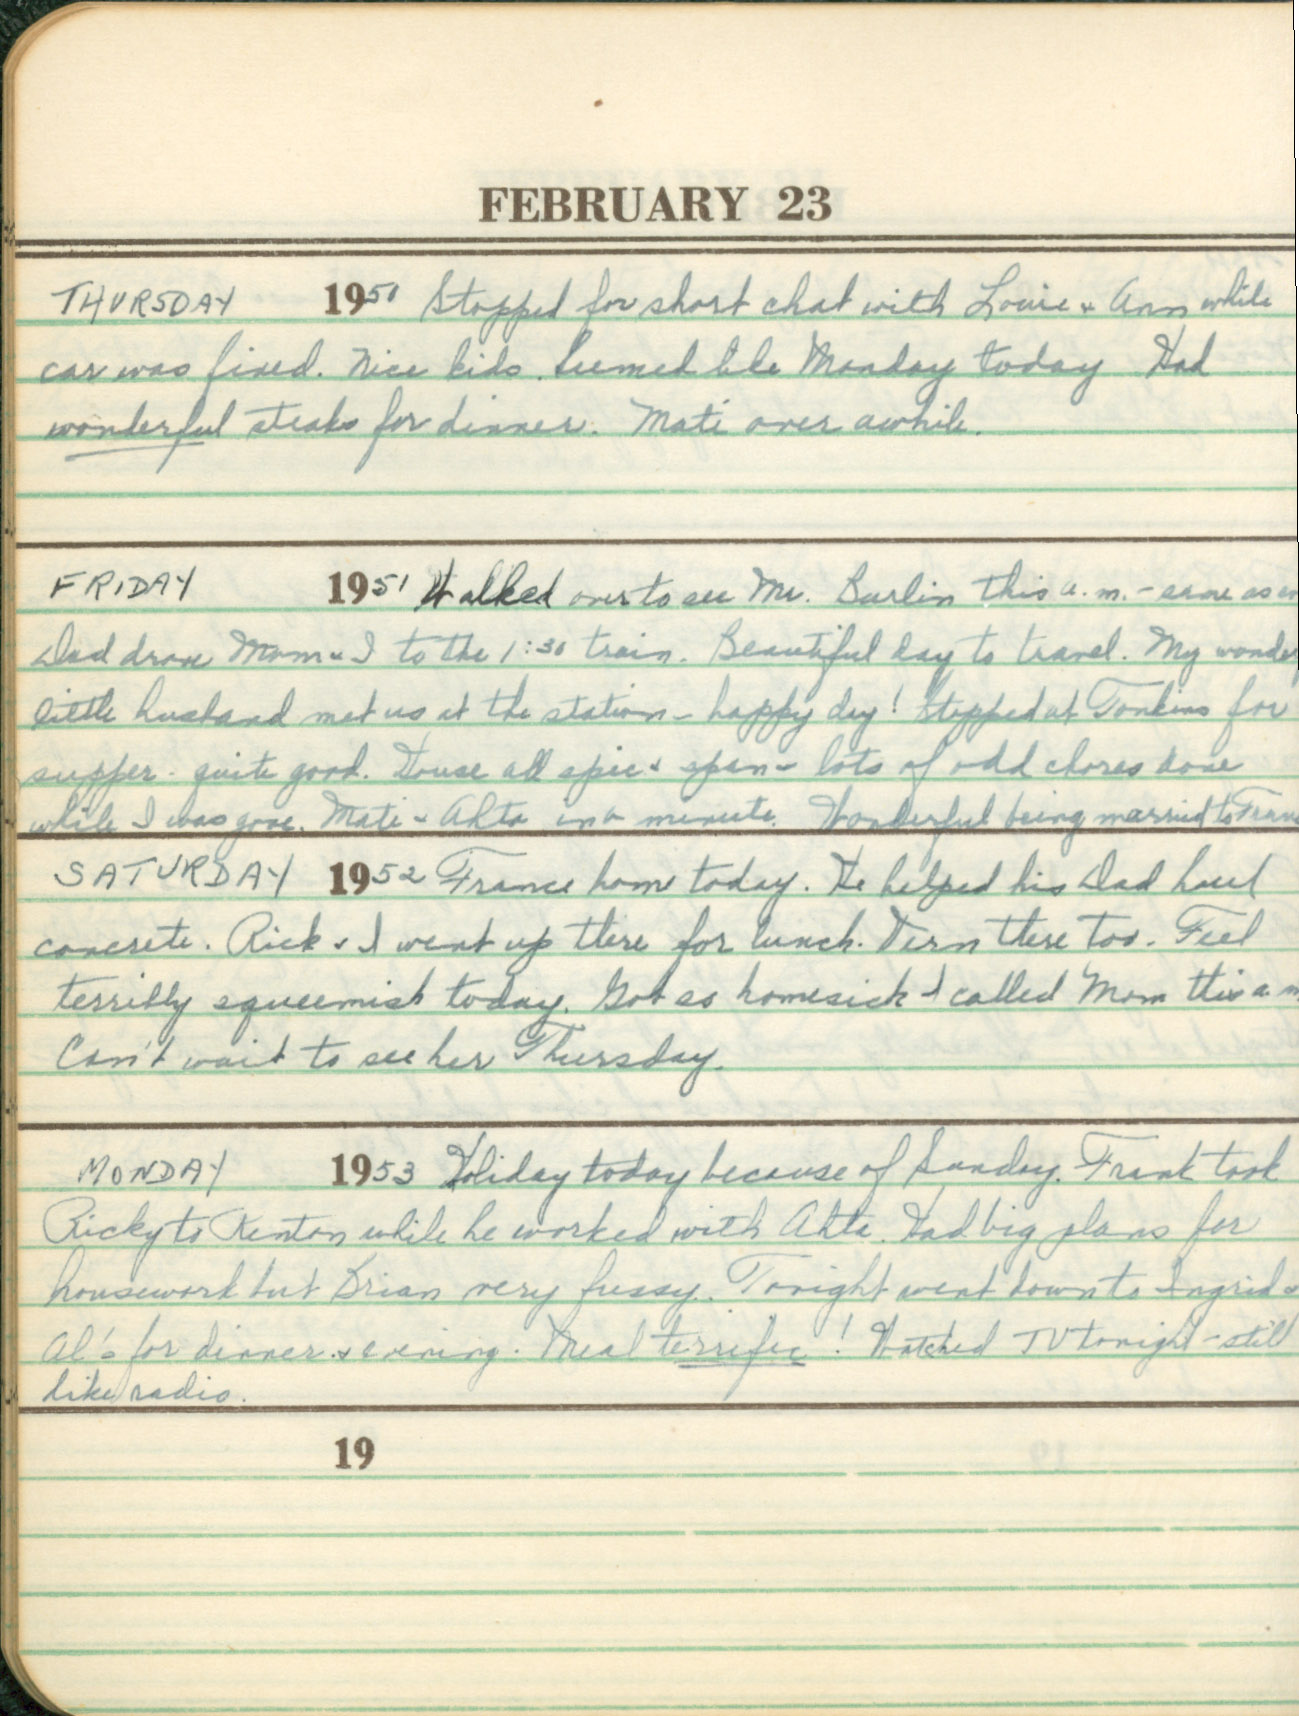 FEBRUARY 23
THURSDAY 1950 Stopped for short chat with Louie & Ann while
car was fixed. Nice kids. Seemed like Monday today Had
wonderful steaks for dinner. Mati over awhile.
FRIDAY 1951 Walked over to see Mr. Burlin this a.m. - same as
Dad drove Mom & I to the 1:30 train. Beautiful day to travel. My wonder
little husband met us at the station - happy day! Stopped at Tonkins for
supper - quite good. House all spic & span - lots of odd chores done
while I was gone. Mati & Ahto in a minute. Wonderful being married to Fran
SATURDAY 1952 France home today. He helped his Dad haul
concrete. Rick & I went up there for lunch. Vern there too. Feel
terribly squeemish today. Got so homesick I called Mom this a.m
Can't wait to see her Thursday.
MONDAY 1953 Holiday today because of Sunday. Frank took
Ricky to Renton while he worked with Ahto. Had big plans for
housework but Brian very fussy. Tonight went down to Ingrid &
Al's for dinner & evening. Meal terrific! Watched TV tonight - still
like radio.
19